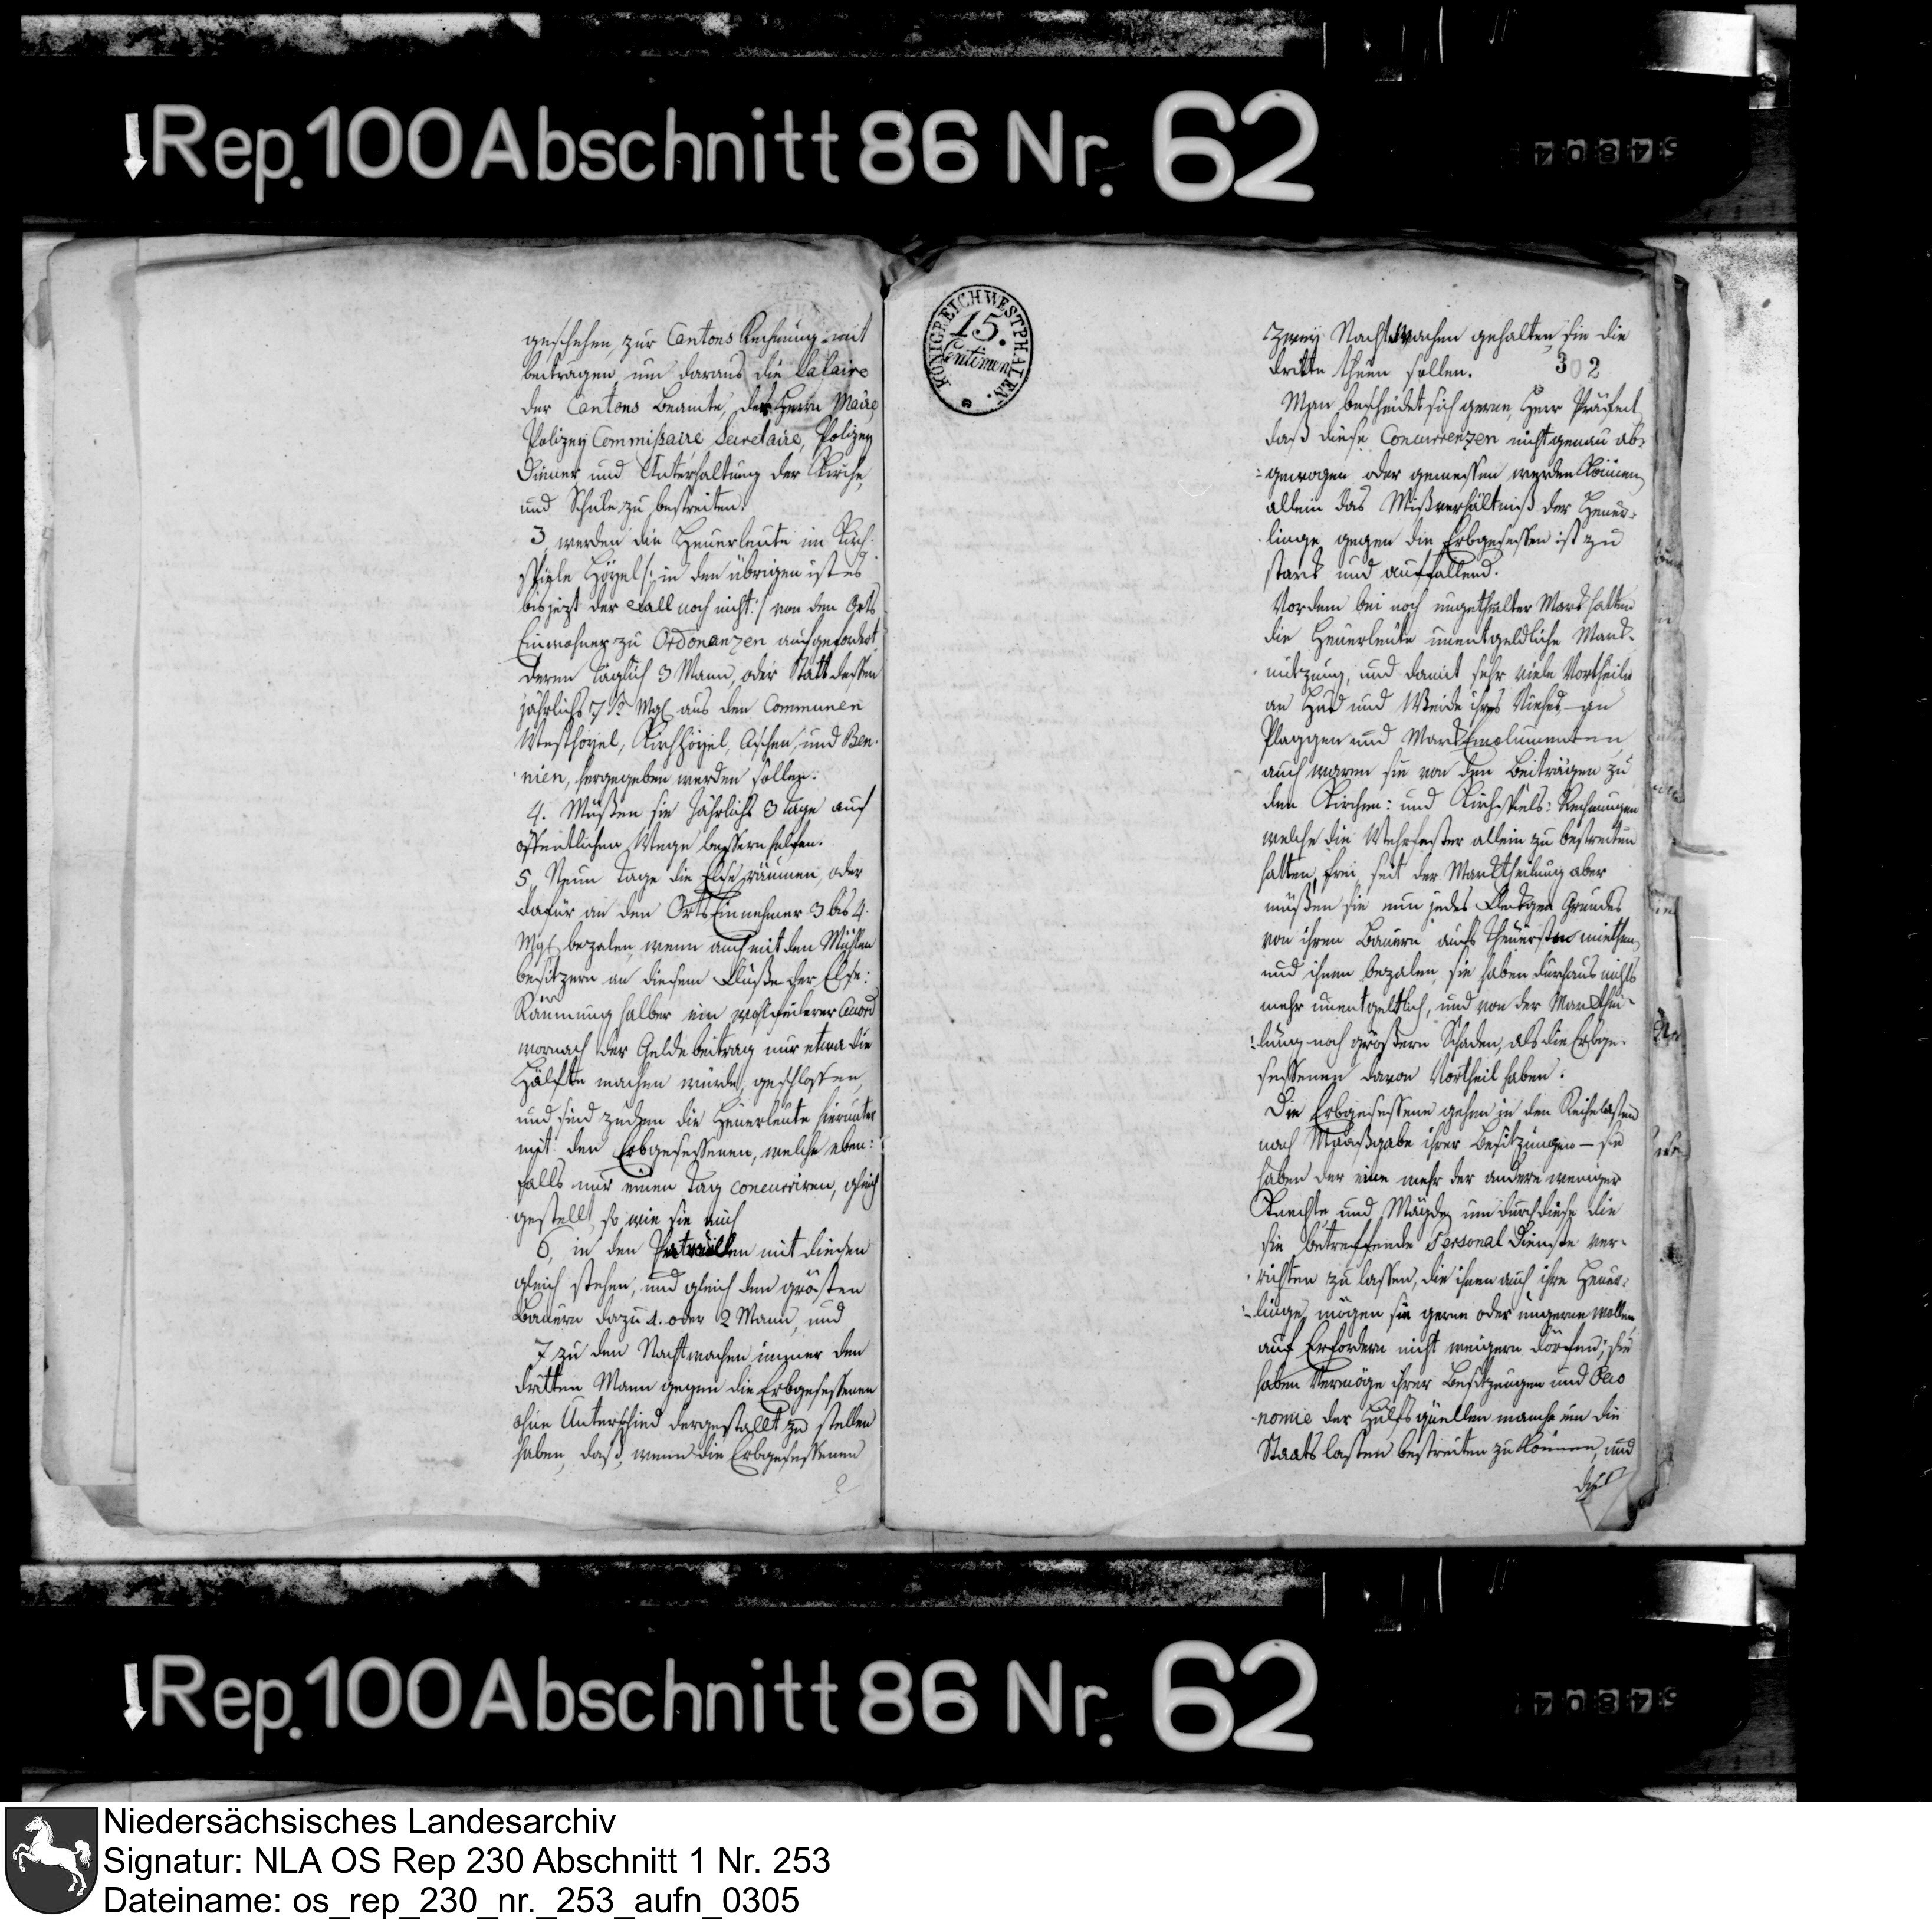 Rep. 100 Abschnitt 86 Nr. 62
geschehen, zur Cantons Rechnung mit
beitragen um daraus die Salaire
der Cantons Beamte, der Herrn Maire,
Polizey Commißaire Secretaire, Polizey
Diener und Unterhaltung der Kirche
und Schule zu bestreiten.
3, werden die Heuerleute im Kirch-
spiele Hoyel /: in den übrigen ist es
bis jezt der Fall noch nicht :/ von den Orts
Einwohner zu Ordonanzen aufgefordert,
deren täglich 3 Mann, oder statt dessen
jährlichs Mgl aus den Communen
Westhoyel, Kirchhoyel, Aschen, und Ben-
nien, hergegeben werden sollen.
4. Müßen sie Jährlichs 3 Tage auf
öffentlichen Wege bessern helfen.
5, Neun Tage die Else räumen, oder
dafür an den Orts Einnehmer 3 bis 4.
Mgl bezalen, wenn auch mit den Mühlen
besitzern an diesem Fluße der Else:
Räumung halber ein wohlfeilerer Accord
wornach der Geldbeitrag nur etwa die
Hälfte machen würde, geschlossen,
und sind zudem die Heuerleute hierunter
mit den Erbgesessenen, welche eben:
falls nur einen Tag concurriren, gleich
gestellt, so wie sie auch
6, in den Patrouillen mit diesen
gleich stehen, und gleich den grösten
Bauern dazu 1. oder 2 Mann, und
7 zu den Nachtwachen immer den
dritten Mann gegen die Erbgesessenen
ohne Unterschied dergestallt zu stellen
haben, daß, wenn die Erbgesessenen
KÖNIGREICH WESTPHALEN.
15.
Centimen
zwey Nachtwachen gehalten, sie die
dritte thuen sollen.
302
Man bescheidet sich gerne, Herr Präfect,
daß diese Concurrenzen nicht genau ab-
gewogen oder gemessen werden können,
allein das Mißverhältniß der Heuer-
linge gegen die Erbgesessen ist zu
stark und auffallend.
Vordem bei noch ungetheilter Mark hatten
die Heuerleute unentgeldliche Mark-
nutzung, und damit sehr viele Vortheile
an Hud und Weide ihres Viehes – an
Plaggen und Mark Emolumenten,
auch waren sie von den Beiträgen zu
den Kirchen: und Kirchspiels: Rechnungen
welche die Wehrfester allein zu bestreiten
hatten, frei, seit der Marktheilung aber
müßen sie nun jedes Fleckgen Grundes
von ihren Bauern aufs Theuerste miethen,
und ihnen bezalen, sie haben durchaus nichts
mehr unentgeltlich, und von der Markthei-
lung noch größern Schaden, als die Erbge-
sessenen davon Vortheil haben.
Die Erbgesessene gehen in den Reihelasten
nach Maaßgabe ihrer Besitzungen – sie
haben der eine mehr der andere weniger
Knechte und Mägde, um durch diese die
sie betreffende Personal Dienste ver-
richten zu lassen, die ihnen auch ihre Heuer-
linge, mögen sie gerne oder ungerne wollen,
auf Erfordern nicht weigern dörfen; sie
haben Vermöge ihrer Besitzungen und Oeco
nomie der Hülfsquellen manche um die
Staatslasten bestreiten zu können, und
Rep. 100 Abschnitt 86 Nr. 62
Niedersächsisches Landesarchiv
Signatur: NLA OS Rep 230 Abschnitt 1 Nr. 253
Dateiname: os_rep_230_nr._253_aufn_0305